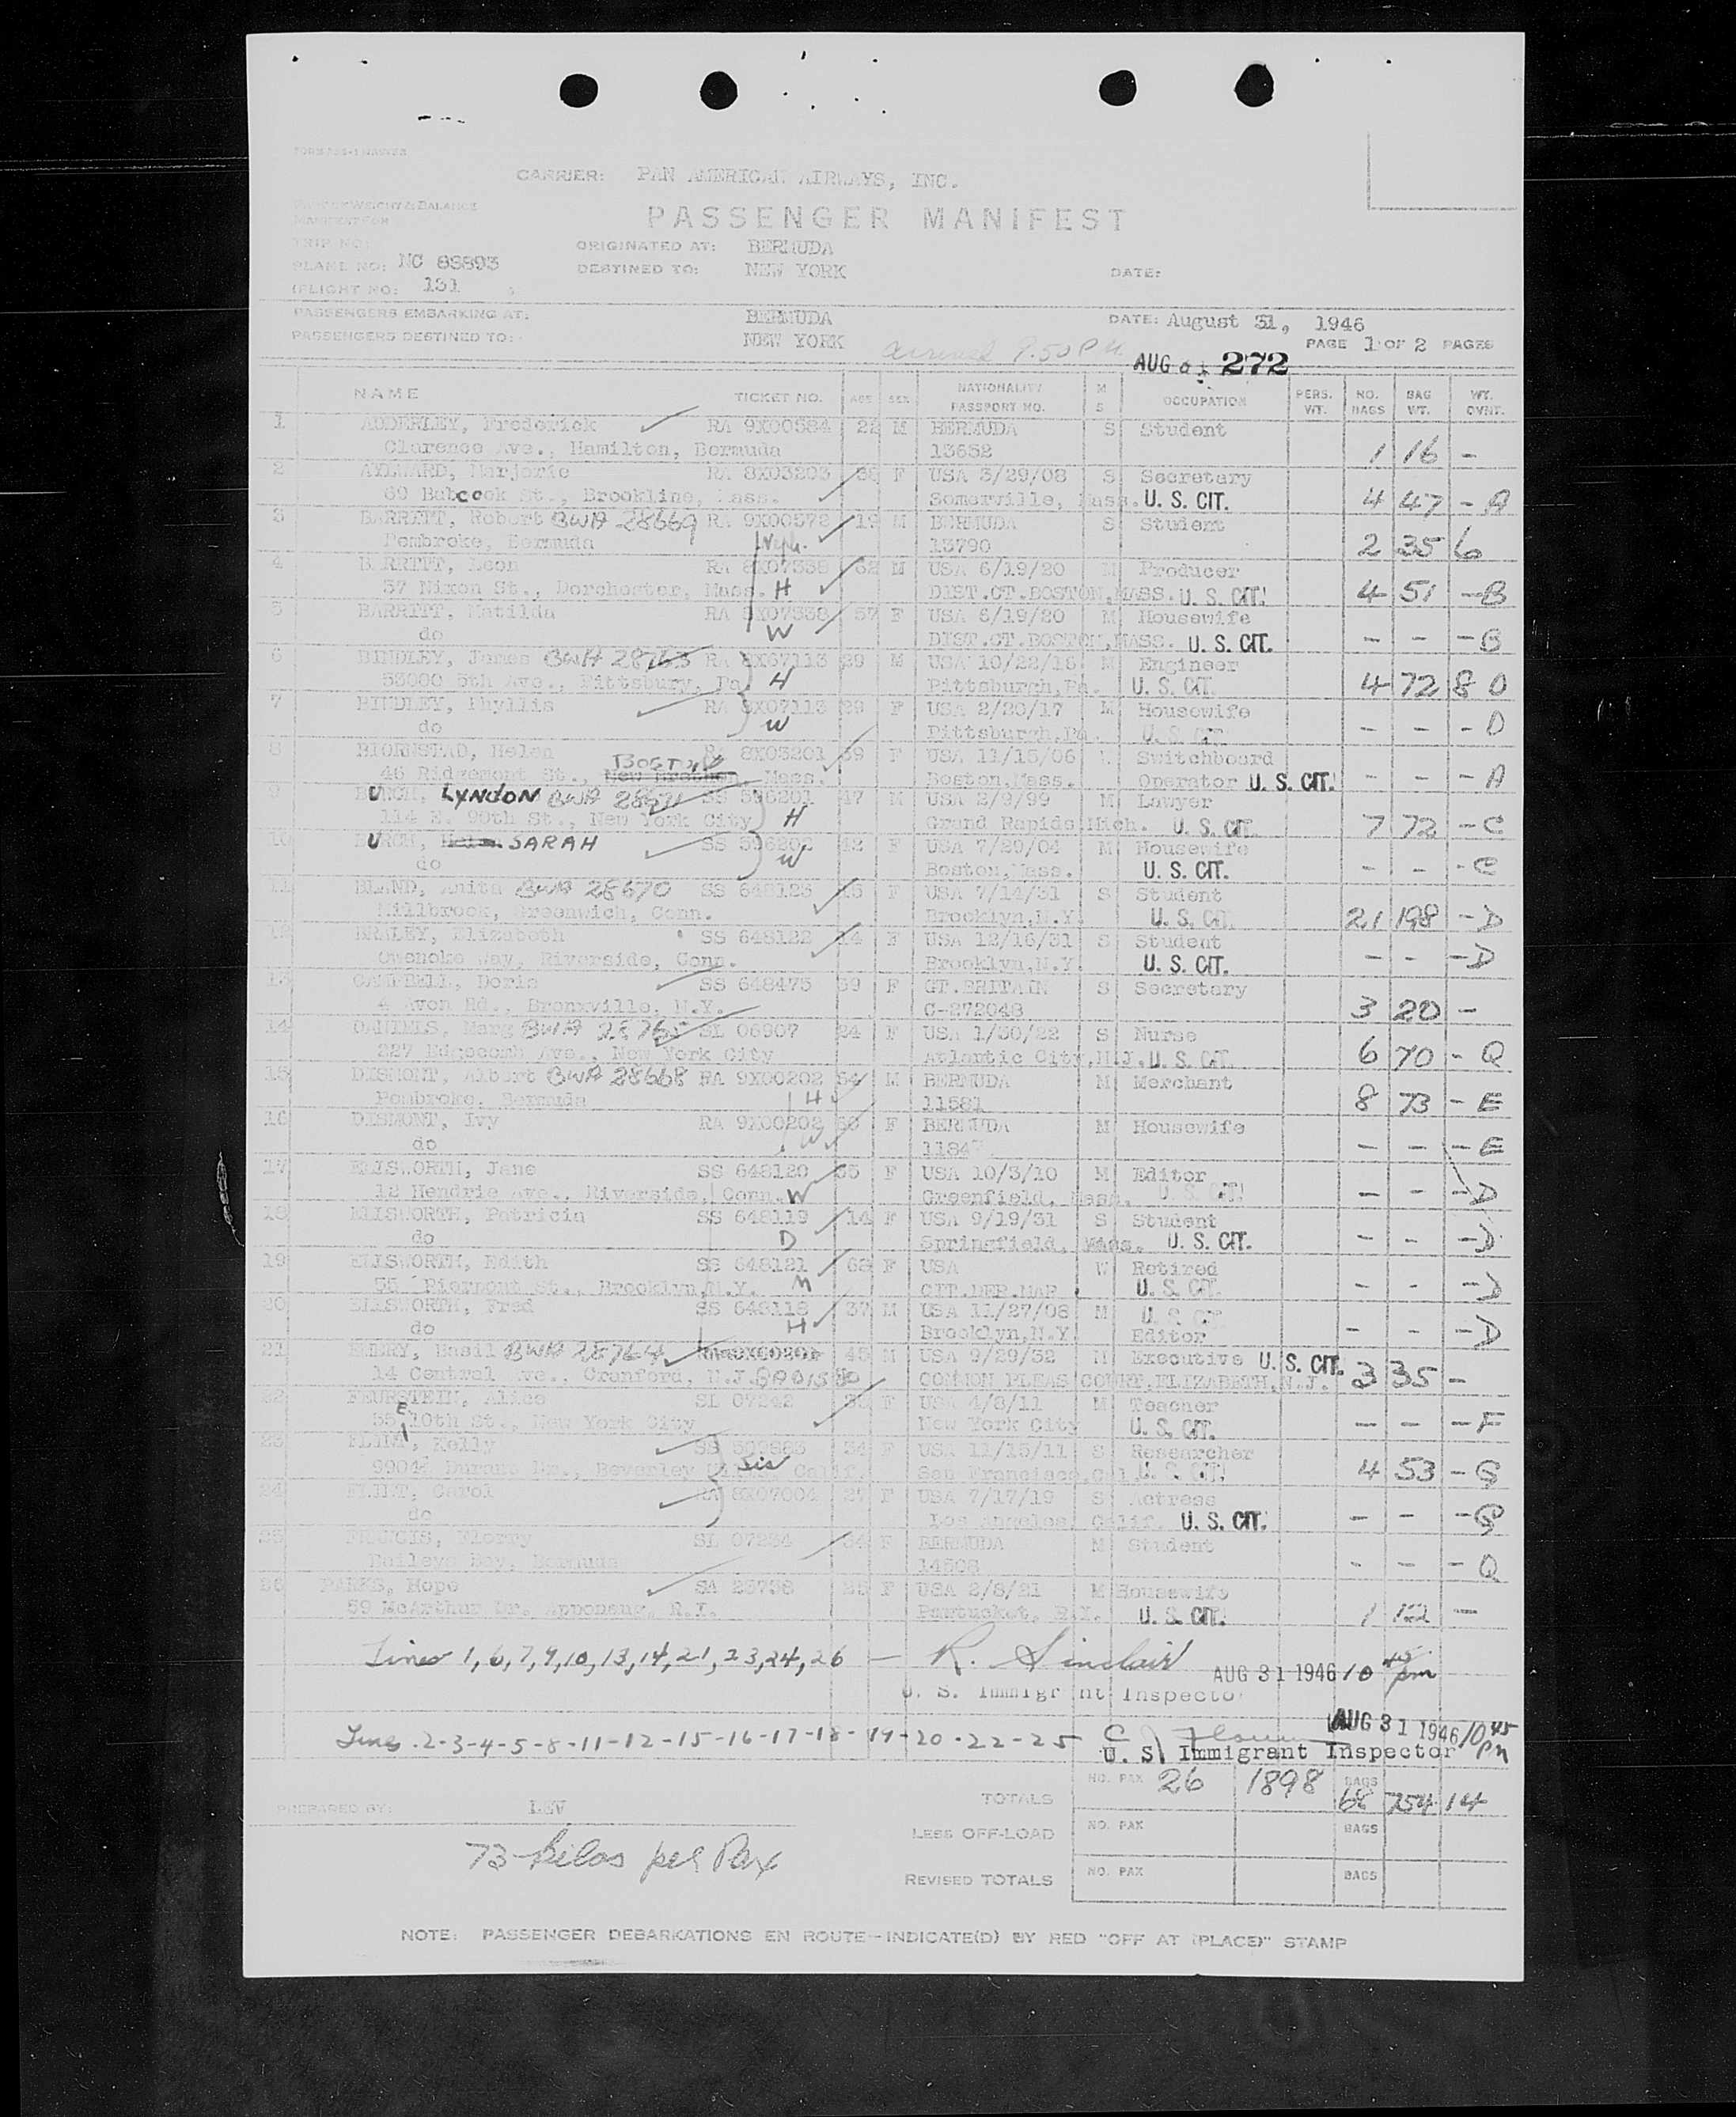 CARRIER: PAN AMERICAN AIRWAYS, INC.
PASSENGER MANIFEST
TRIP NO:
ORIGINATED AT: BERMUDA
PLANE NO: NC 88893
DESTINED TO: NEW YORK
DATE:
(FLIGHT NO: 131
PASSENGERS EMBARKING AT: BERMUDA
DATE: August 31, 1946
PASSENGERS DESTINED TO: NEW YORK
PAGE 1 OF 2 PAGES
arrived 9.50 P.M.
AUG 31 272
NAME TICKET NO. AGE SEX NATIONALITY PASSPORT NO. M S OCCUPATION PERS. WT. NO. BAGS BAG WT. WT. OVNT.
1 ADDERLEY, Frederick RA 9X00584 22 M BERMUDA S Student
Clarence Ave., Hamilton, Bermuda 13652 1 16 -
2 AYLWARD, Marjorie RA 8X03203 38 F USA 3/29/08 S Secretary
69 Babcock St., Brookline, Mass. Somerville, Mass. U. S. CIT. 4 47 - A
3 BARRITT, Robert BWA 28669 RA 9X00572 19 M BERMUDA S Student
Pembroke, Bermuda Neph. 13790 2 35 6
4 BARRITT, Leon RA 8X07338 62 M USA 6/19/20 M Producer
37 Nixon St., Dorchester, Mass. H DIST.CT.BOSTON,MASS. U. S. CIT. 4 51 - B
5 BARRITT, Matilda RA 8X07338 57 F USA 6/19/20 M Housewife
do W DIST.CT.BOSTON,MASS. U. S. CIT. - - - B
6 BINDLEY, James BWA 28763 RA 8X07113 29 M USA 10/22/16 M Engineer
53000 5th Ave., Pittsbury, Pa. H Pittsburgh,Pa. U. S. CIT. 4 72 8 D
7 BINDLEY, Phyllis RA 8X07113 29 F USA 2/20/17 M Housewife
do W Pittsburgh,Pa. U. S. CIT. - - - D
8 BIORNSTAD, Helen RA 8X03201 39 F USA 11/15/06 Switchboard
46 Ridgemont St., BOSTON Mass. Boston,Mass. Operator U. S. CIT. - - - A
9 BURCH, LYNDON BWA 28671 SS 596201 47 M USA 2/9/99 M Lawyer
114 E. 90th St., New York City H Grand Rapids Mich. U. S. CIT. 7 72 - C
10 BURCH, SARAH SS 596202 42 F USA 7/29/04 M Housewife
do W Boston,Mass. U. S. CIT. - - - C
11 BLAND, Anita BWA 28670 SS 648123 15 F USA 7/14/31 S Student
Millbrook, Greenwich, Conn. Brooklyn,N.Y. U. S. CIT. 21 198 - D
12 Elizabeth SS 648122 14 F USA 12/16/31 S Student
Owenoke Way, Riverside, Conn. Brooklyn,N.Y. U. S. CIT. - - - D
13 CAMPBELL, Doris SS 648475 39 F GT.BRITAIN S Secretary
4 Avon Rd., Bronxville, N.Y. C-272048 3 20 -
14 DANIELS, Marg BWA 28765 SL 06907 24 F USA 1/30/22 S Nurse
227 Edgecomb Ave., New York City Atlantic City,N.J. U. S. CIT. 6 70 - Q
15 DISMONT, Albert BWA 28668 RA 9X00202 54 M BERMUDA M Merchant
Pembroke, Bermuda H 11581 8 73 - E
16 DISMONT, Ivy RA 9X00202 F BERMUDA M Housewife
do W 1184 - - - E
17 ELLSWORTH, Jane SS 648120 35 F USA 10/3/10 M Editor
12 Hendrie Ave., Riverside, Conn. W Greenfield, Mass. U. S. CIT. - - - D
18 ELLSWORTH, Patricia SS 648119 14 F USA 9/19/31 S Student
do D Springfield, Mass. U. S. CIT. - - - D
19 ELLSWORTH, Edith SS 648121 62 F USA W Retired
55 Pierpont St., Brooklyn,N.Y. M CIT.DER.MAR. U. S. CIT. - - - D
20 ELLSWORTH, Fred SS 648118 37 M USA 11/27/08 M U. S. CIT.
do H Brooklyn,N.Y. Editor - - - D
21 EMERY, Basil BWA 28764 45 M USA 9/29/32 M Executive U. S. CIT.
14 Central Ave., Cranford, N.J. COMMON PLEAS COURT,ELIZABETH,N.J. 3 35 -
22 FEURSTEIN, Alice SL 07242 35 F USA 4/8/11 M Teacher
35 E 10th St., New York City New York City U. S. CIT. - - - F
23 FLINT, Kelly SS 34 F USA 11/15/11 S Researcher
9904 Durant Dr., Beverley Sis Calif. San Francisco,Cal. U. S. CIT. 4 53 - G
24 FLINT, Carol RA 8X07004 27 F USA 7/17/19 S Actress
do Los Angeles, Calif. U. S. CIT. - - - G
25 FRANCIS, Florry SL 07234 34 F BERMUDA M Student
Baileys Bay, Bermuda 14508 - - - Q
26 PARKS, Hope SA 25738 25 F USA 2/8/21 M Housewife
59 McArthur Dr. Apponaug, R.I. Pawtucket, R.I. U. S. CIT. 1 12 -
Lines 1,6,7,9,10,13,14,21,23,24,26 - R. Sinclair AUG 31 1946 10 45 pm
U. S. Immigrant Inspector
Lines 2-3-4-5-8-11-12-15-16-17-18-19-20-22-25 AUG 31 1946 10 45 PM
U. S. Immigrant Inspector
TOTALS NO. PAX 26 1898 BAGS 68 754 14
PREPARED BY: LEV
LESS OFF-LOAD NO. PAX BAGS
73 kilos per Pax
REVISED TOTALS NO. PAX BAGS
NOTE: PASSENGER DEBARKATIONS EN ROUTE--INDICATE(D) BY RED "OFF AT (PLACE)" STAMP